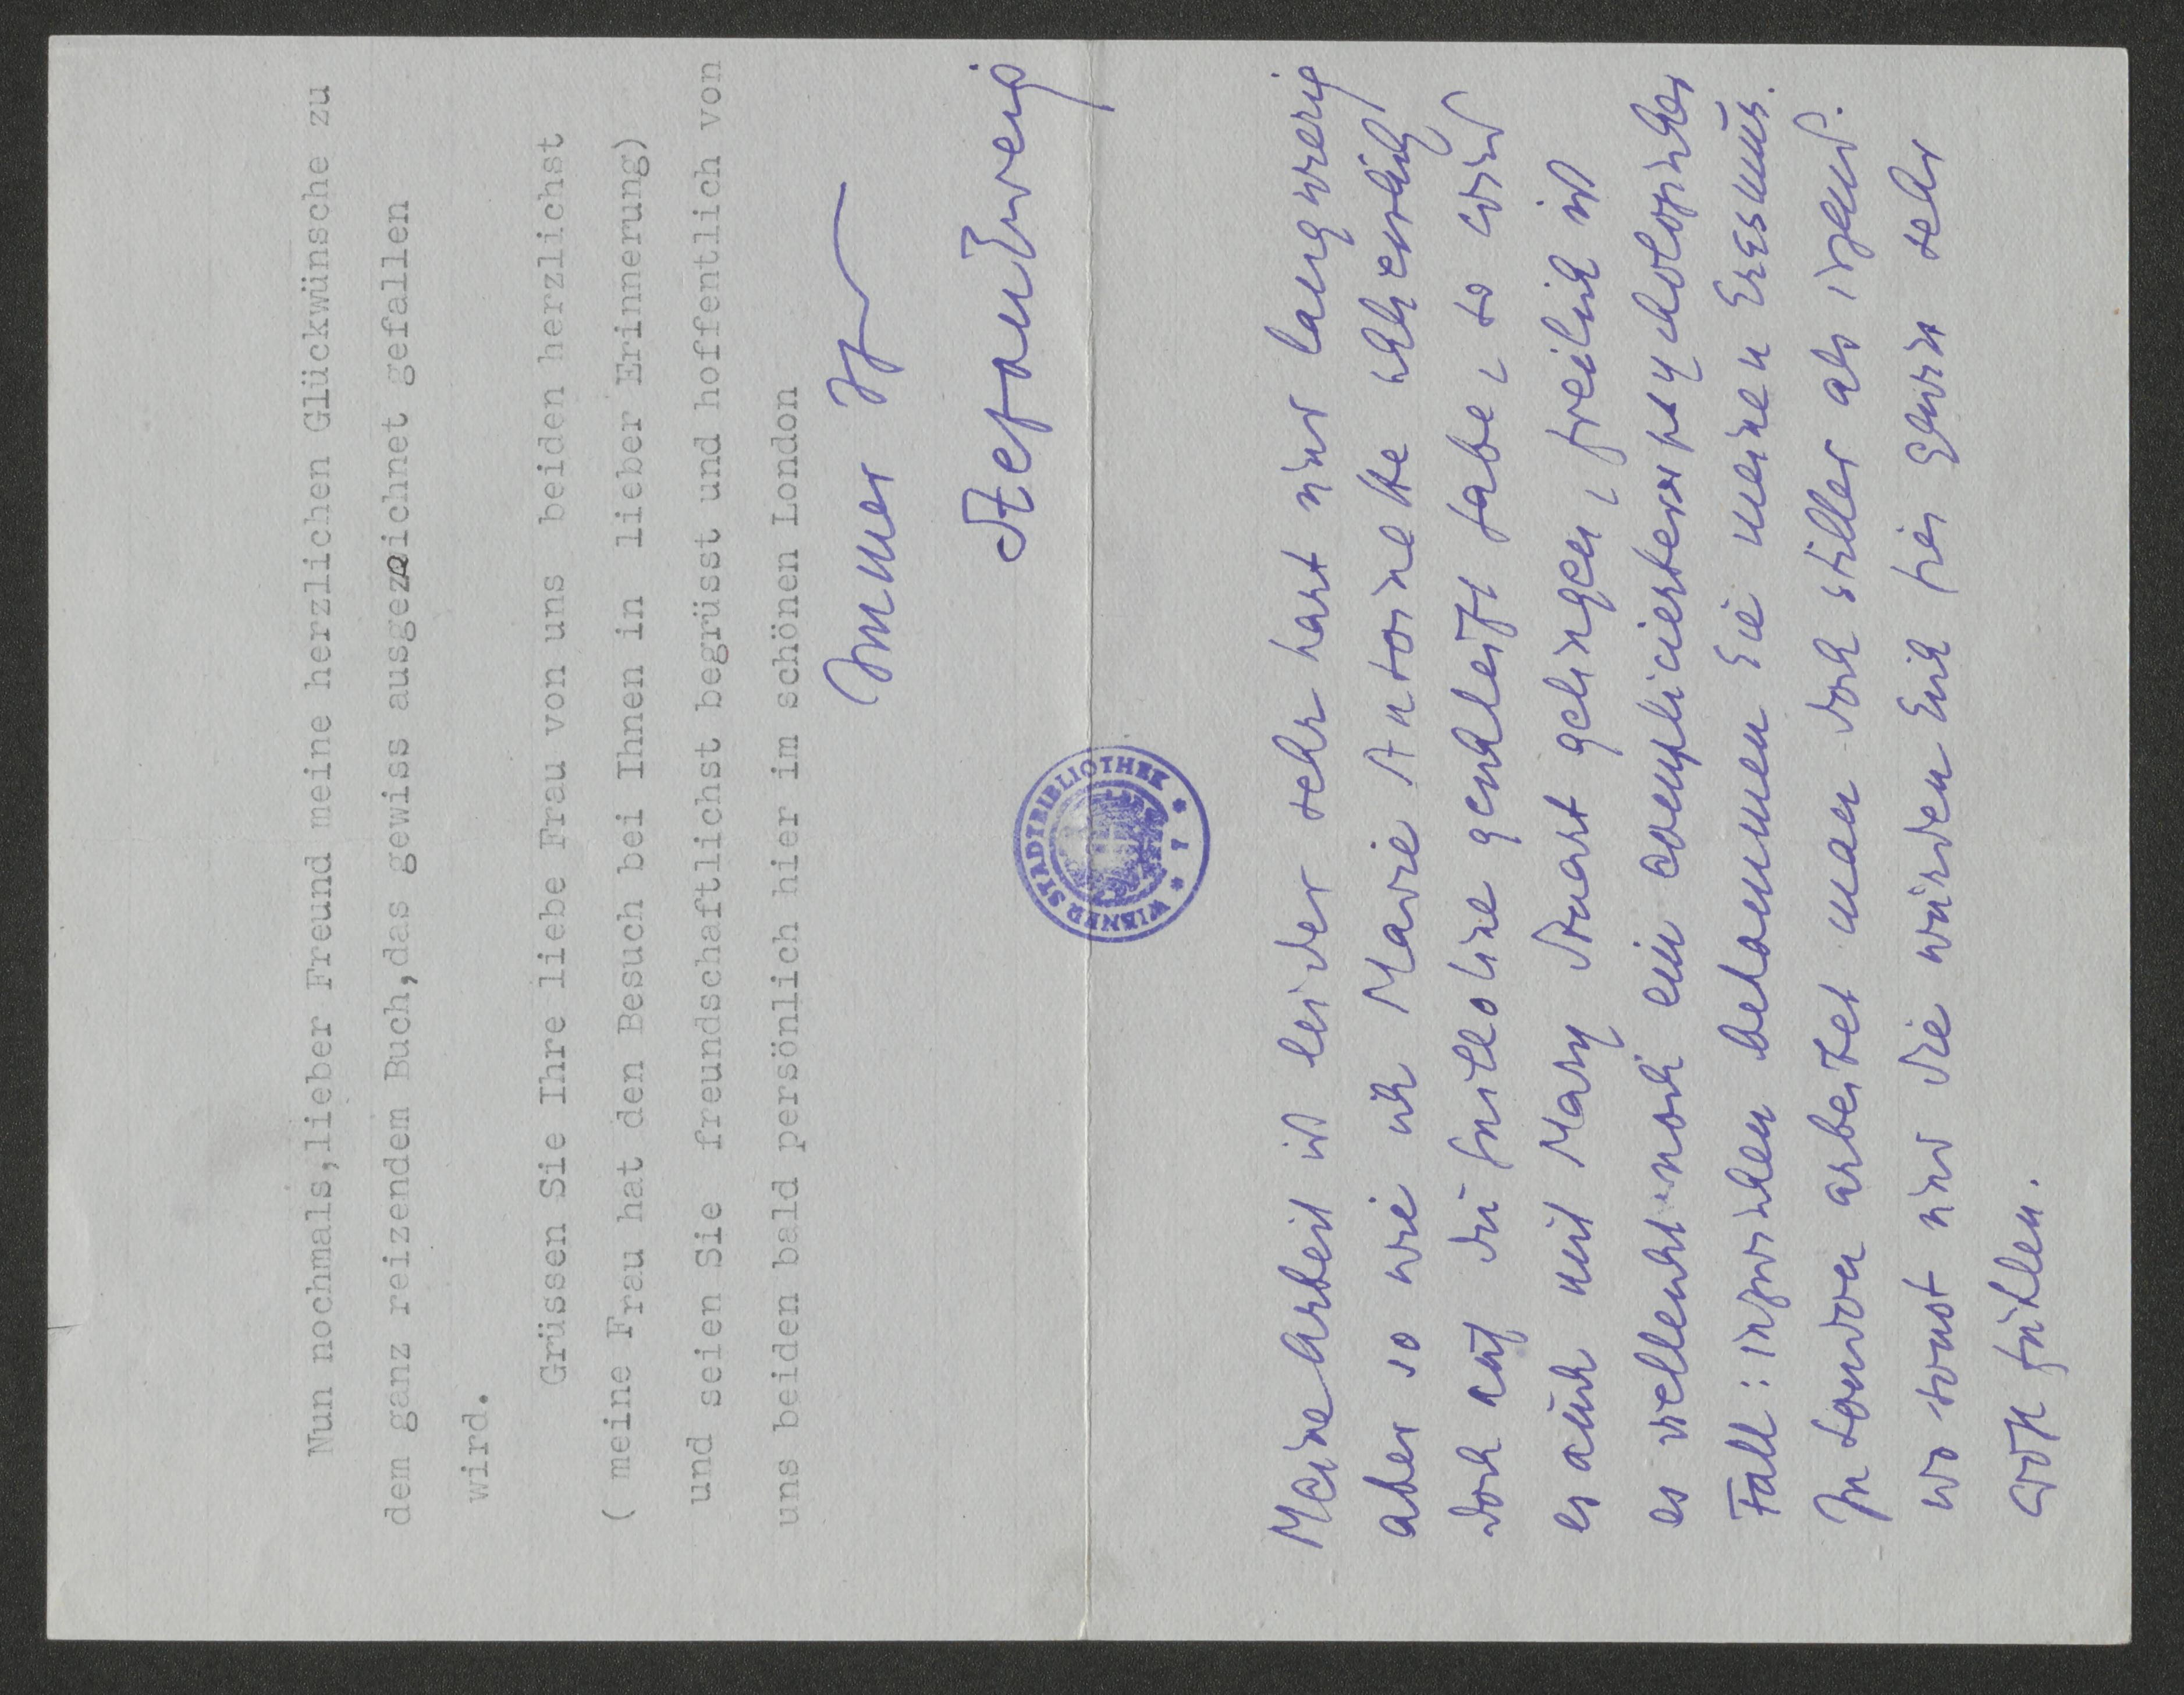 Nun nochmals,lieber Freund meine herzlichen Glückwünsche zu
dem ganz reizendem Buch,das gewiss ausgezeichnet gefallen
wird.
Grüssen Sie Ihre liebe Frau von uns beiden herzlichst
( meine Frau hat den Besuch bei Ihnen in lieber Erinnerung)
und seien Sie freundschaftlichst begrüsst und hoffentlich von
uns beiden bald persönlich hier im schönen London
Immer Ihr
Stefan Zweig
WIENER STADTBIBLIOTHEK
Meine Arbeit ist leider sehr hart und langwierig
aber so wie ich Marie Antoinette schliesslich
doch auf die geschleift habe, so wird
es auch mit Mary Stuart gelingen, freilich ist
es vielleicht noch ein complicierterer psychologischer
Fall: inzwischen bekommen Sie meinen Erasmus.
In London arbeitet man doch stiller als irgend
wo sonst und Sie würden sich hier gewiss sehr
wohl fühlen.